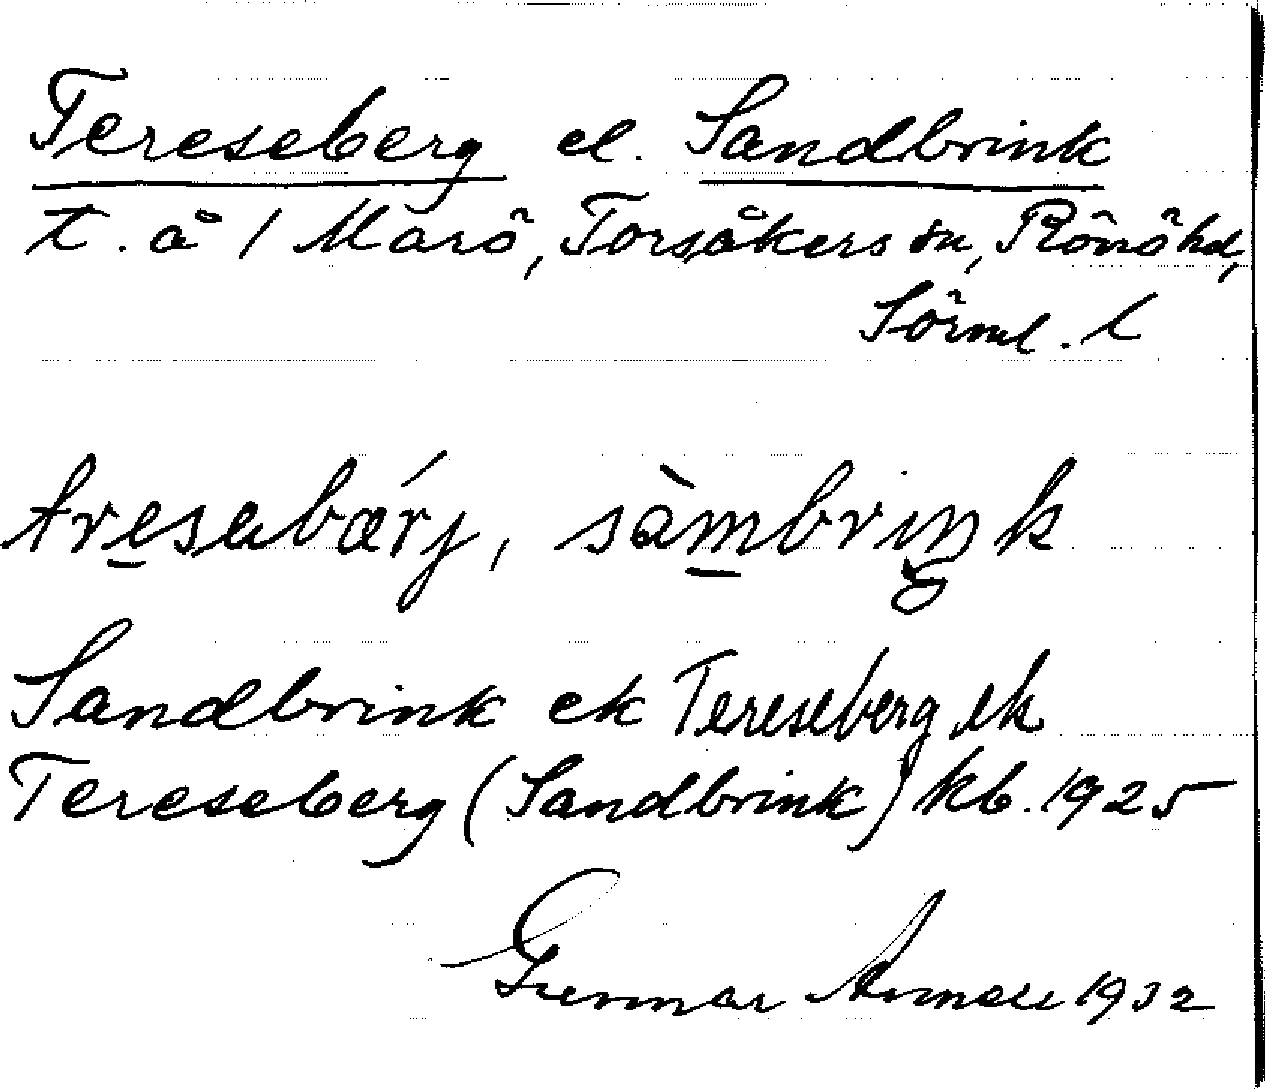 Tereseberg el. Sandbrink
t. å 1 Marö, Torsåkers sn, Rönö hd,
Sörml. l
tresebærj, sàmbriŋk
Sandbrink ek Tereseberg ek
Tereseberg (Sandbrink) kb. 1925
Gunnar 1932